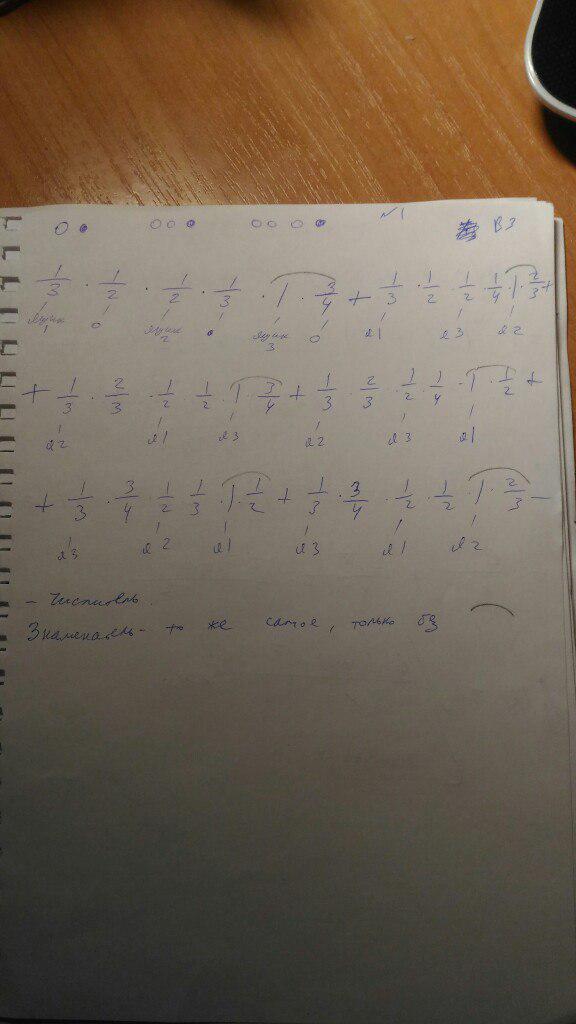 №1 В3
1/3 · 1/2 · 1/2 · 1/3 · 1 · 3/4 + 1/3 · 1/2 · 1/2 · 1/4 · 1 · 2/3 +
ящик 1 ящик 2 ящик 3 я1 я3 я2
+ 1/3 · 2/3 · 1/2 · 1/2 · 1 · 3/4 + 1/3 · 2/3 · 1/2 · 1/4 · 1 · 1/2 +
я2 я1 я3 я2 я3 я1
+ 1/3 · 3/4 · 1/2 · 1/3 · 1 · 1/2 + 1/3 · 3/4 · 1/2 · 1/2 · 1 · 2/3 –
я3 я2 я1 я3 я1 я2
– числитель.
Знаменатель – то же самое, только без